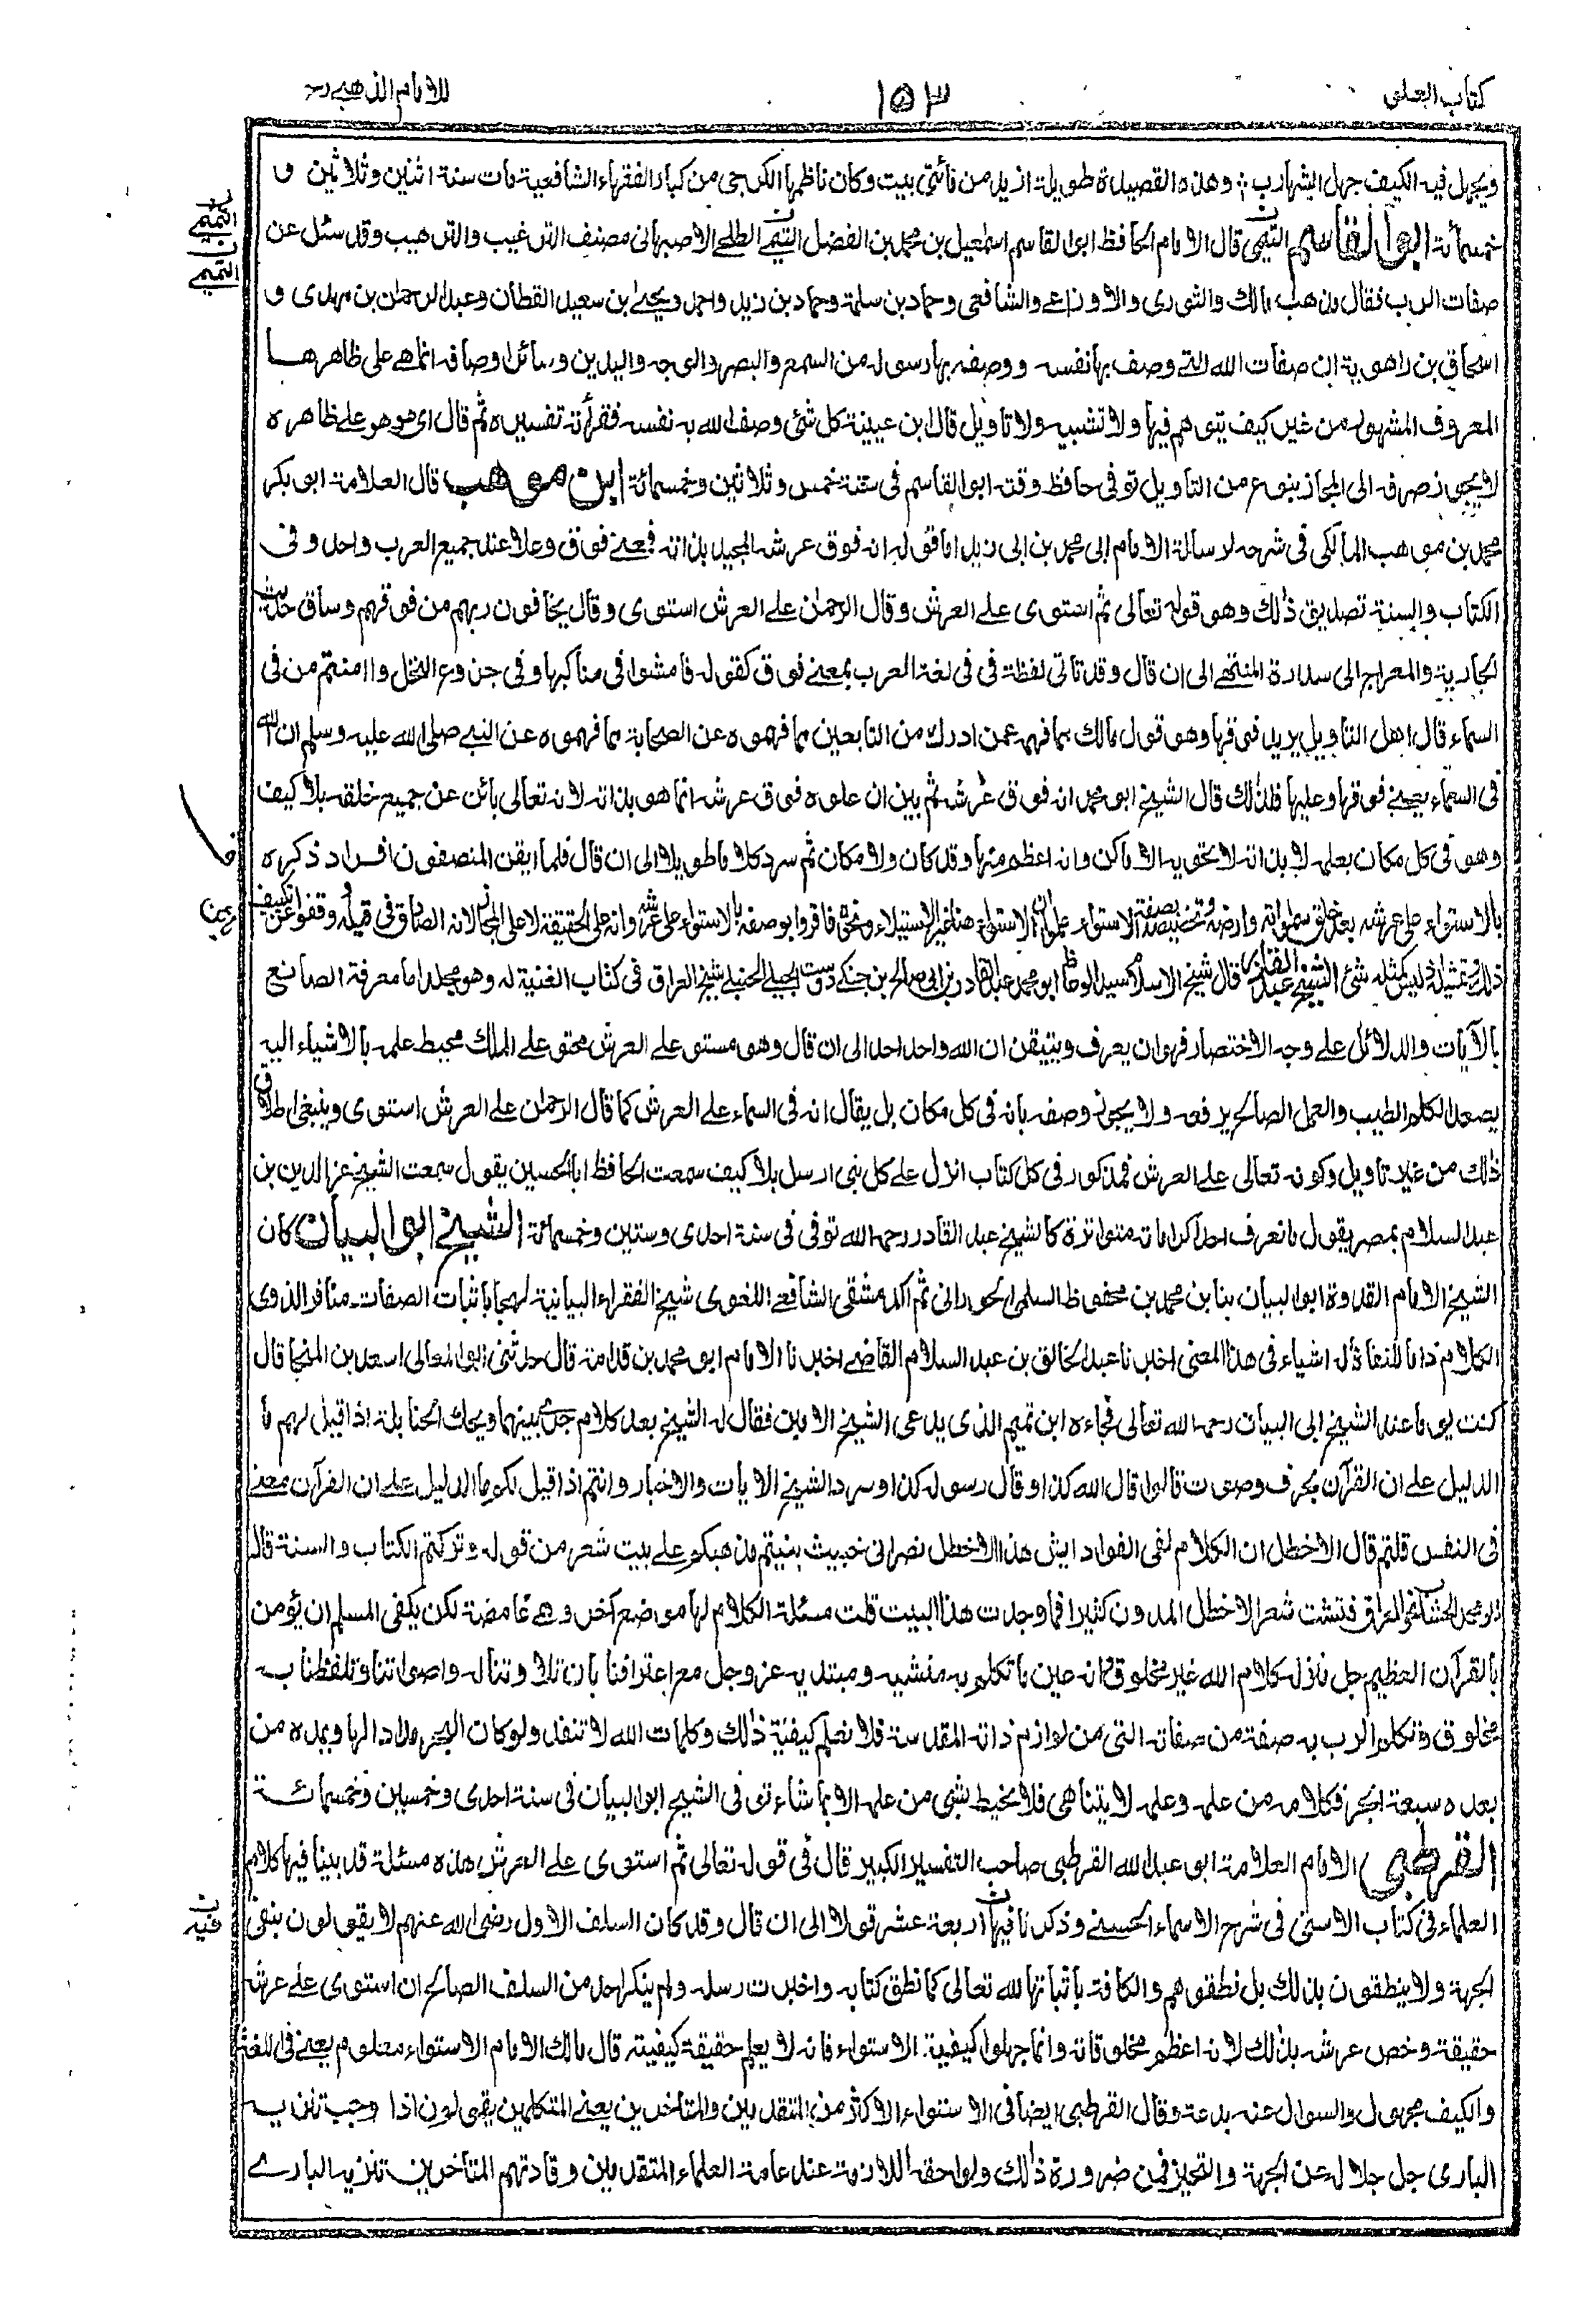 كتاب العلو
١٥٣
للامام الذهبي رح
ويجهل فيه الكيف جهل الشهارب ؛ وهذه القصيدة طويلة ازيد من مائتى بيت وكان ناظمها الكرجى من كبار الفقهاء الشافعية مات سنة اثنين وثلاثين و
خمسمائة ابوالقاسم التيمى قال الامام الحافظ ابوالقاسم اسمعيل بن محمد بن الفضل التيمى الطلحى الاصبهانى مصنف الترغيب والترهيب وقد سئل عن
صفات الرب فقال مذهب مالك والثورى والاوزاعے والشافعى وحماد بن سلمة وحماد بن زيد واحمد ويحيے ابن سعيد القطان وعبدالرحمان بن مهدى و
اسحاق بن راهوية ان صفات الله التے وصف بها نفسه ووصفه بها رسوله من السمع والبصر والوجه واليدين وسائر اوصافه انما هے على ظاهرها
المعروف المشهور من غير كيف يتوهم فيها ولا تشبيه ولا تاويل قال ابن عيينة كل شئ وصف الله به نفسه فقرأته تفسيره ثم قال اى هو هو علے ظاهره
لا يجوز صرفه الى المجاز بنوع من التاويل توفى حافظ وقته ابوالقاسم فى سنة خمس وثلاثين وخمسمائة ابن موهب قال العلامة ابوبكر
محمد بن موهب المالكى فى شرحه لرسالة الامام ابى محمد بن ابى زيد اما قوله انه فوق عرشه المجيد بذاته فمعنے فوق وعلا عند جميع العرب واحد وفى
الكتاب والسنة تصديق ذلك وهو قوله تعالى ثم استوى علے العرش وقال الرحمٰن علے العرش استوى وقال يخافون ربهم من فوقهم وساق حديث
الجارية والمعراج الى سدرة المنتهے الى ان قال وقد تاتى لفظة فى فى لغة العرب بمعنے فوق كقوله فامشوا فى مناكبها وفى جذوع النخل وأامنتم من فى
السماء قال اهل التاويل يريد فوقها وهو قول مالك مما فهمه عمن ادرك من التابعين مما فهموه عن الصحابة مما فهموه عن النبے صلى الله عليه وسلم ان الله
فى السماء يعنے فوقها وعليها فلذلك قال الشيخ ابو محمد انه فوق عرشه ثم بين ان علوه فوق عرشه انما هو بذاته لانه تعالى بائن عن جميع خلقه بلا كيف
وهو فى كل مكان بعلمه لا بذاته لا تحويه الاماكن وانه اعظم منها وقد كان ولا مكان ثم سرد كلاما طويلا الى ان قال فلما ايقن المنصفون افراد ذكره
بالاستواء على عرشه بعد خلق سمٰواته وارضه وتخصيصه بصفة الاستواء علموا ان الاستواء هنا غير الاستيلاء ونحوه فاقروا بوصفه بالاستواء على عرشه وانه على الحقيقة لا على المجاز لانه الصادق فى قيله ووقفوا عن تكييف
ذلك وتمثيله اذ ليس كمثله شئ الشيخ عبد القادر قال شيخ الاسلام سيد الوعاظ ابو محمد عبدالقادر بن ابى صالح بن جنكے دوست الجيلے الحنبلے شيخ العراق فى كتاب الغنية له وهو مجلد اما معرفة الصانع
بالآيات والدلائل علے وجه الاختصار فهو ان يعرف ويتيقن ان الله واحد احد الى ان قال وهو مستو علے العرش محتو علے الملك محيط علمه بالاشياء اليه
يصعد الكلم الطيب والعمل الصالح يرفعه ولا يجوز وصفه بانه فى كل مكان بل يقال انه فى السماء علے العرش كما قال الرحمٰن علے العرش استوى وينبغى اطلاق
ذلك من غير تاويل وكونه تعالى علے العرش فمذكور فى كل كتاب انزل علے كل نبى ارسل بلا كيف سمعت الحافظ ابا الحسين يقول سمعت الشيخ عزالدين بن
عبد السلام بمصر يقول ما نعرف احدا كراماته متواترة كالشيخ عبد القادر رحمه الله توفى فى سنة احدى وستين وخمسمائة الشيخ ابو البيان كان
الشيخ الامام القدوة ابوالبيان بنا بن محمد بن محفوظ السلمى الحورانى ثم الدمشقى الشافعے اللغوى شيخ الفقراء البيانية لهجا باثبات الصفات منافرا لذوى
الكلام ذاما للنفاة له اشياء فى هذا المعنى اخبرنا عبد الخالق بن عبد السلام القاضے اخبرنا الامام ابو محمد بن قدامة قال حدثنى ابوالمعالى اسعد بن المنجا قال
كنت يوما عند الشيخ ابى البيان رحمه الله تعالى فجاءه ابن تميم الذى يدعى الشيخ الامين فقال له الشيخ بعد كلام جرے بينهما ويحك الحنابلة اذا قيل لهم ما
الدليل علے ان القرآن بحرف وصوت قالوا قال الله كذا وقال رسوله كذا وسرد الشيخ الايات والاخبار وانتم اذا قيل لكم ما الدليل علے ان القرآن معنے
فى النفس قلتم قال الاخطل ان الكلام لفى الفواد ايش هذا الاخطل نصرانى خبيث بنيتم مذهبكم علے بيت شعر من قوله وتركتم الكتاب والسنة قال
ابو محمد الخشاب نحوى العراق فتشت شعر الاخطل المدون كثيرا فما وجدت هذا البيت قلت مسئلة الكلام لها موضع آخر وهے غامضة لكن يكفى المسلم ان يؤمن
بالقرآن العظيم جل منزله كلام الله غير مخلوق وانه عين ما تكلم به منشيه ومبتديه عز وجل مع اعترافنا بان تلاوتنا له واصواتنا وتلفظنا به
مخلوق وتكلم الرب به صفة من صفاته التى من لوازم ذاته المقدسة فلا نعلم كيفية ذلك وكلمات الله لا تنفد ولو كان البحر مدادا لها ويمده من
بعده سبعة ابحر فكلامه من علمه وعلمه لا يتناهى فلا نحيط بشئ من علمه الا بما شاء توفى الشيخ ابو البيان فى سنة احدى وخمسين وخمسمائة
القرطبى الامام العلامة ابو عبدالله القرطبى صاحب التفسير الكبير قال فى قوله تعالى ثم استوى علے العرش هذه مسئلة قد بينا فيها كلام
العلماء فى كتاب الاسنى فى شرح الاسماء الحسنے وذكرنا فيها اربعة عشر قولا الى ان قال وقد كان السلف الاول رضى الله عنهم لا يقولون بنفى
الجهة ولا ينطقون بذلك بل نطقوا هم والكافة باثباتها لله تعالى كما نطق كتابه واخبرت رسله ولم ينكر احد من السلف الصالح انه استوى علے عرشه
حقيقة وخص عرشه بذلك لانه اعظم مخلوقاته وانما جهلوا كيفية الاستواء فانه لا يعلم حقيقة كيفيته قال مالك الامام الاستواء معلوم يعنے فى اللغة
والكيف مجهول والسوال عنه بدعة وقال القرطبى ايضا فى الاستواء الاكثر من المتقدمين والمتاخرين يعنے المتكلمين يقولون اذا وجب تنزيه
البارى جل جلاله عن الجهة والتحيز فمن ضرورة ذلك ولواحقه اللازمة عند عامة العلماء المتقدمين وقادتهم المتاخرين تنزيه البارے